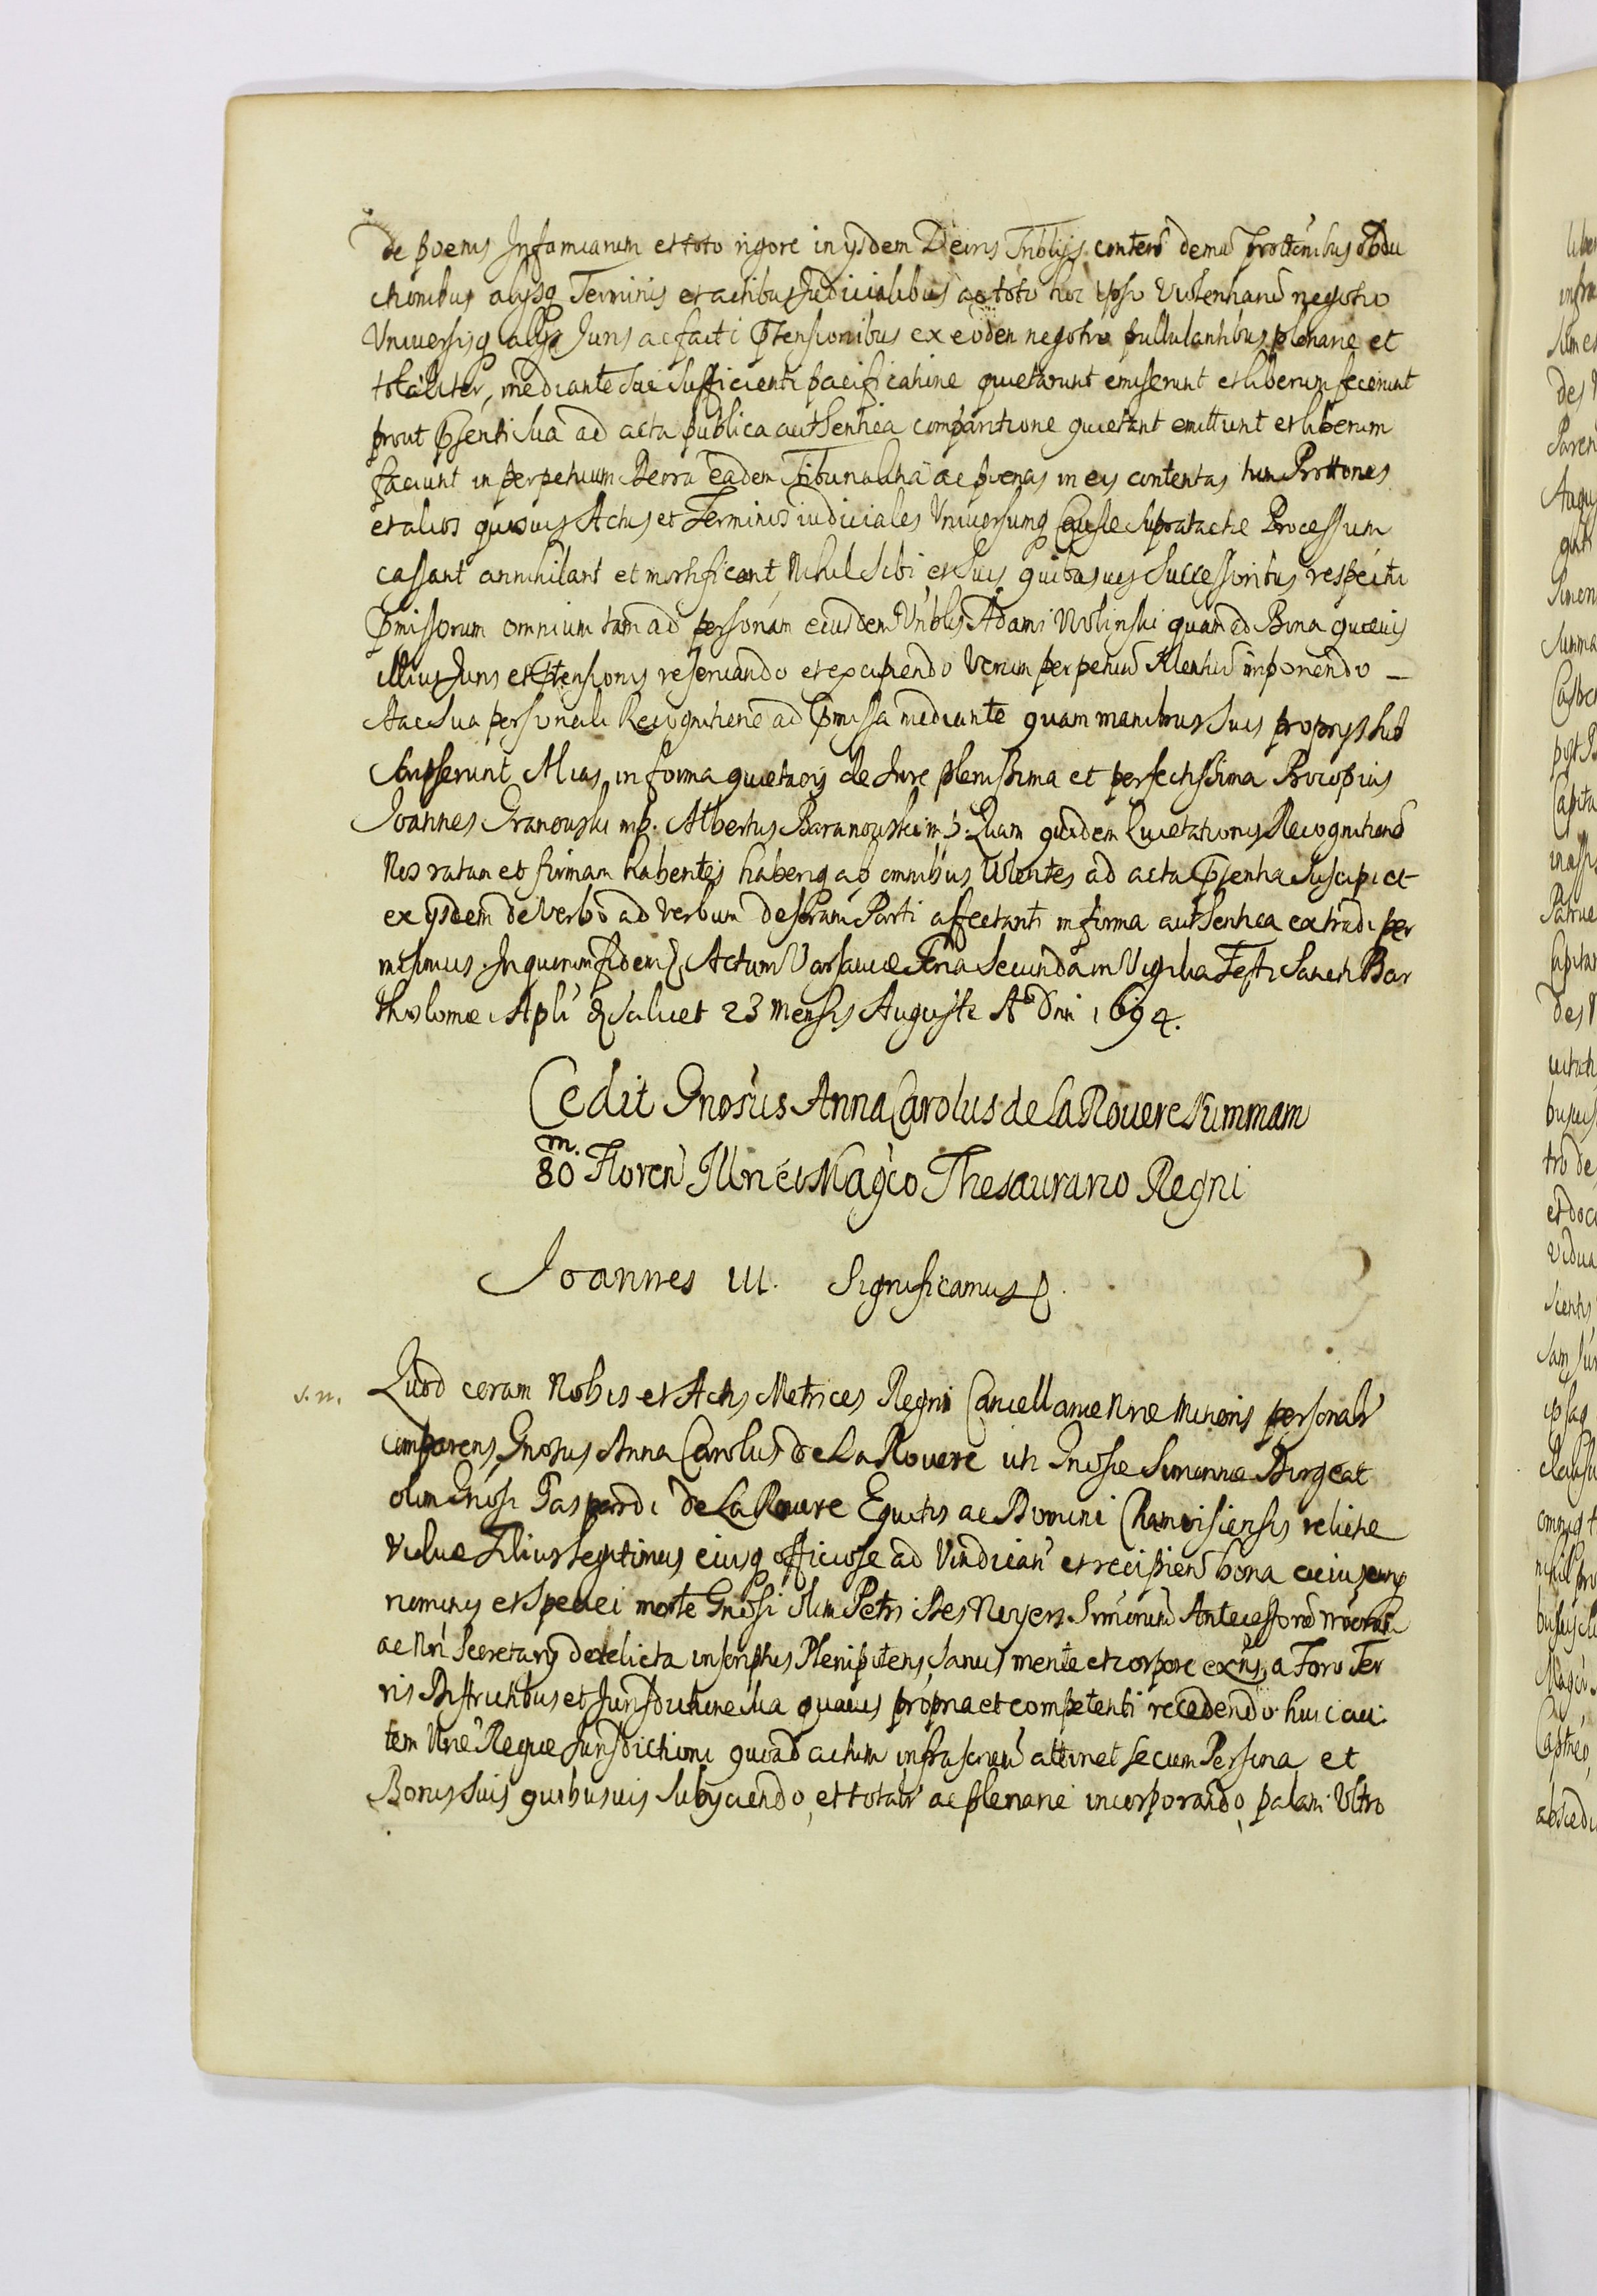 de poenis Infamiarum et toto rigore in ijsdem Decris Tribljs contens demu Prottonibus obdu
ctionibus alijsq Terminis et actibus Judicialibus ac toto hoc ipso Violentiarũ negotio
Universisq alijs Juris ac facti Ptensionibus ex eodem negotio pullulantibus plenarie et
totaliter, mediante sui sufficienti pacificatione quietarunt emiserunt et liberum fecerunt
prout Psenti sua ad acta publica authentica comparitione quietant emittunt et liberum
faciunt in perpetuum Decra eadem Tribunalitia ac poenas in eis contentas tum Prottones
et alios quosvis Actus et Terminos iudiciales Universumq Causæ supratactæ Processum
cassant annihilant et mortificant, Nihil sibi et suis quibusvis Successoribus respectu
Pmissorum omnium tam ad personam eiusdem Gnblis Adami Wolinski quam ad Bona quævis
illius Juris et Ptensionis reservando et excipiendo Verum perpetuũ silentiũ imponendo –
Hac sua personali Recognitione ad Pmissa mediante quam manibus suis proprijs sub
scripserunt Alias in forma quietaõis de Jure plenissima et perfectissima Procopius
Joannes Granowski mp. Albertus Baranowski mp. Quam quidem Quietationis Recognitionẽ
Nos ratam et firmam habentes haberiq ab omnibus Volentes ad acta Psentia suscipi et
ex ijsdem de verbo ad verbum descriptam Parti affectanti in forma authentica extradi per
misimus. In quorum fidem & Actum Varsaviæ Feria Secunda in Vigilia Festi Sancti Bar
tholomæi Apli & scilicet 23 Mensis Augusti Aõ Dni 1694.
Cedit Gnosus Anna Carolus de La Rovere Summam
m.
80 Floren Illri et Magco Thesaurario Regni
Joannes III. Significamus &.
s.n. Quod coram Nobis et Actis Metrices Regni Cancellariæ Nræ Minoris personalr
comparens Gnosus Anna Carolus de La Rovere uti Gnosæ Simonnæ Burgeat
olim Gnosi Gaspardi de La Rovere Equitis ac Domini Chamoisiensis relictæ
Viduæ Filius legitimus eiusq officiose ad Vindican et recipien bona cuiuscunq
nominis et speciei morte Gnosi olim Petri Des Noyers Smorum Antecessorũ nrorum
ac Nri Secretarij derelicta inscriptus Plenipotens, Sanus mente et corpore exñs, a Foro Ter
ris Districtibus et Jurisdictione sua quavis propria et competenti recedendo huic au
tem Nræ Regiæ Jurisdictioni quoad actum infrascriptũ attinet se cum Persona et
Bonis suis quibusvis subijciendo, et totalr ac plenarie incorporando, palam Ultro